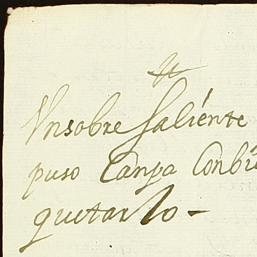 Vnsobre saliente
puso Canpa Conbi
quetarlo-